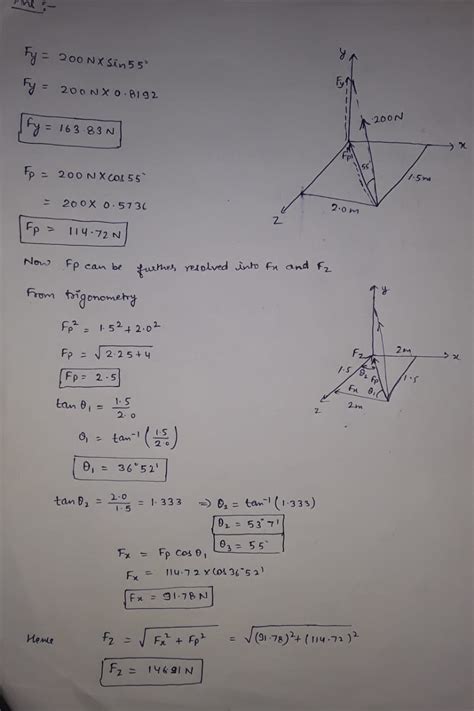 Ans :-
Fy = 200N×Sin55°
Fy = 200N×0.8192
Fy = 163.83N
Fp = 200N×Cos55°
= 200×0.5736
Fp = 114.72N
y
Fy
200N
x
Fp
55°
1.5m
2.0m
Z
Now Fp can be further resolved into Fx and Fz
From trigonometry
Fp² = 1.5²+2.0²
Fp = √2.25+4
Fp = 2.5
tan θ₁ = 1.5/2.0
θ₁ = tan⁻¹(1.5/2.0)
θ₁ = 36°52'
y
Fz
2m
x
1.5
θ₂
Fp
Fx
θ₁
1.5
Z
2m
tanθ₂ = 2.0/1.5 = 1.333 ⇒ θ₂ = tan⁻¹(1.333)
θ₂ = 53°7'
θ₃ = 55°
Fx = Fp cos θ₁
Fx = 114.72×Cos36°52'
Fx = 91.78N
Hence Fz = √Fx²+Fp² = √(91.78)²+(114.72)²